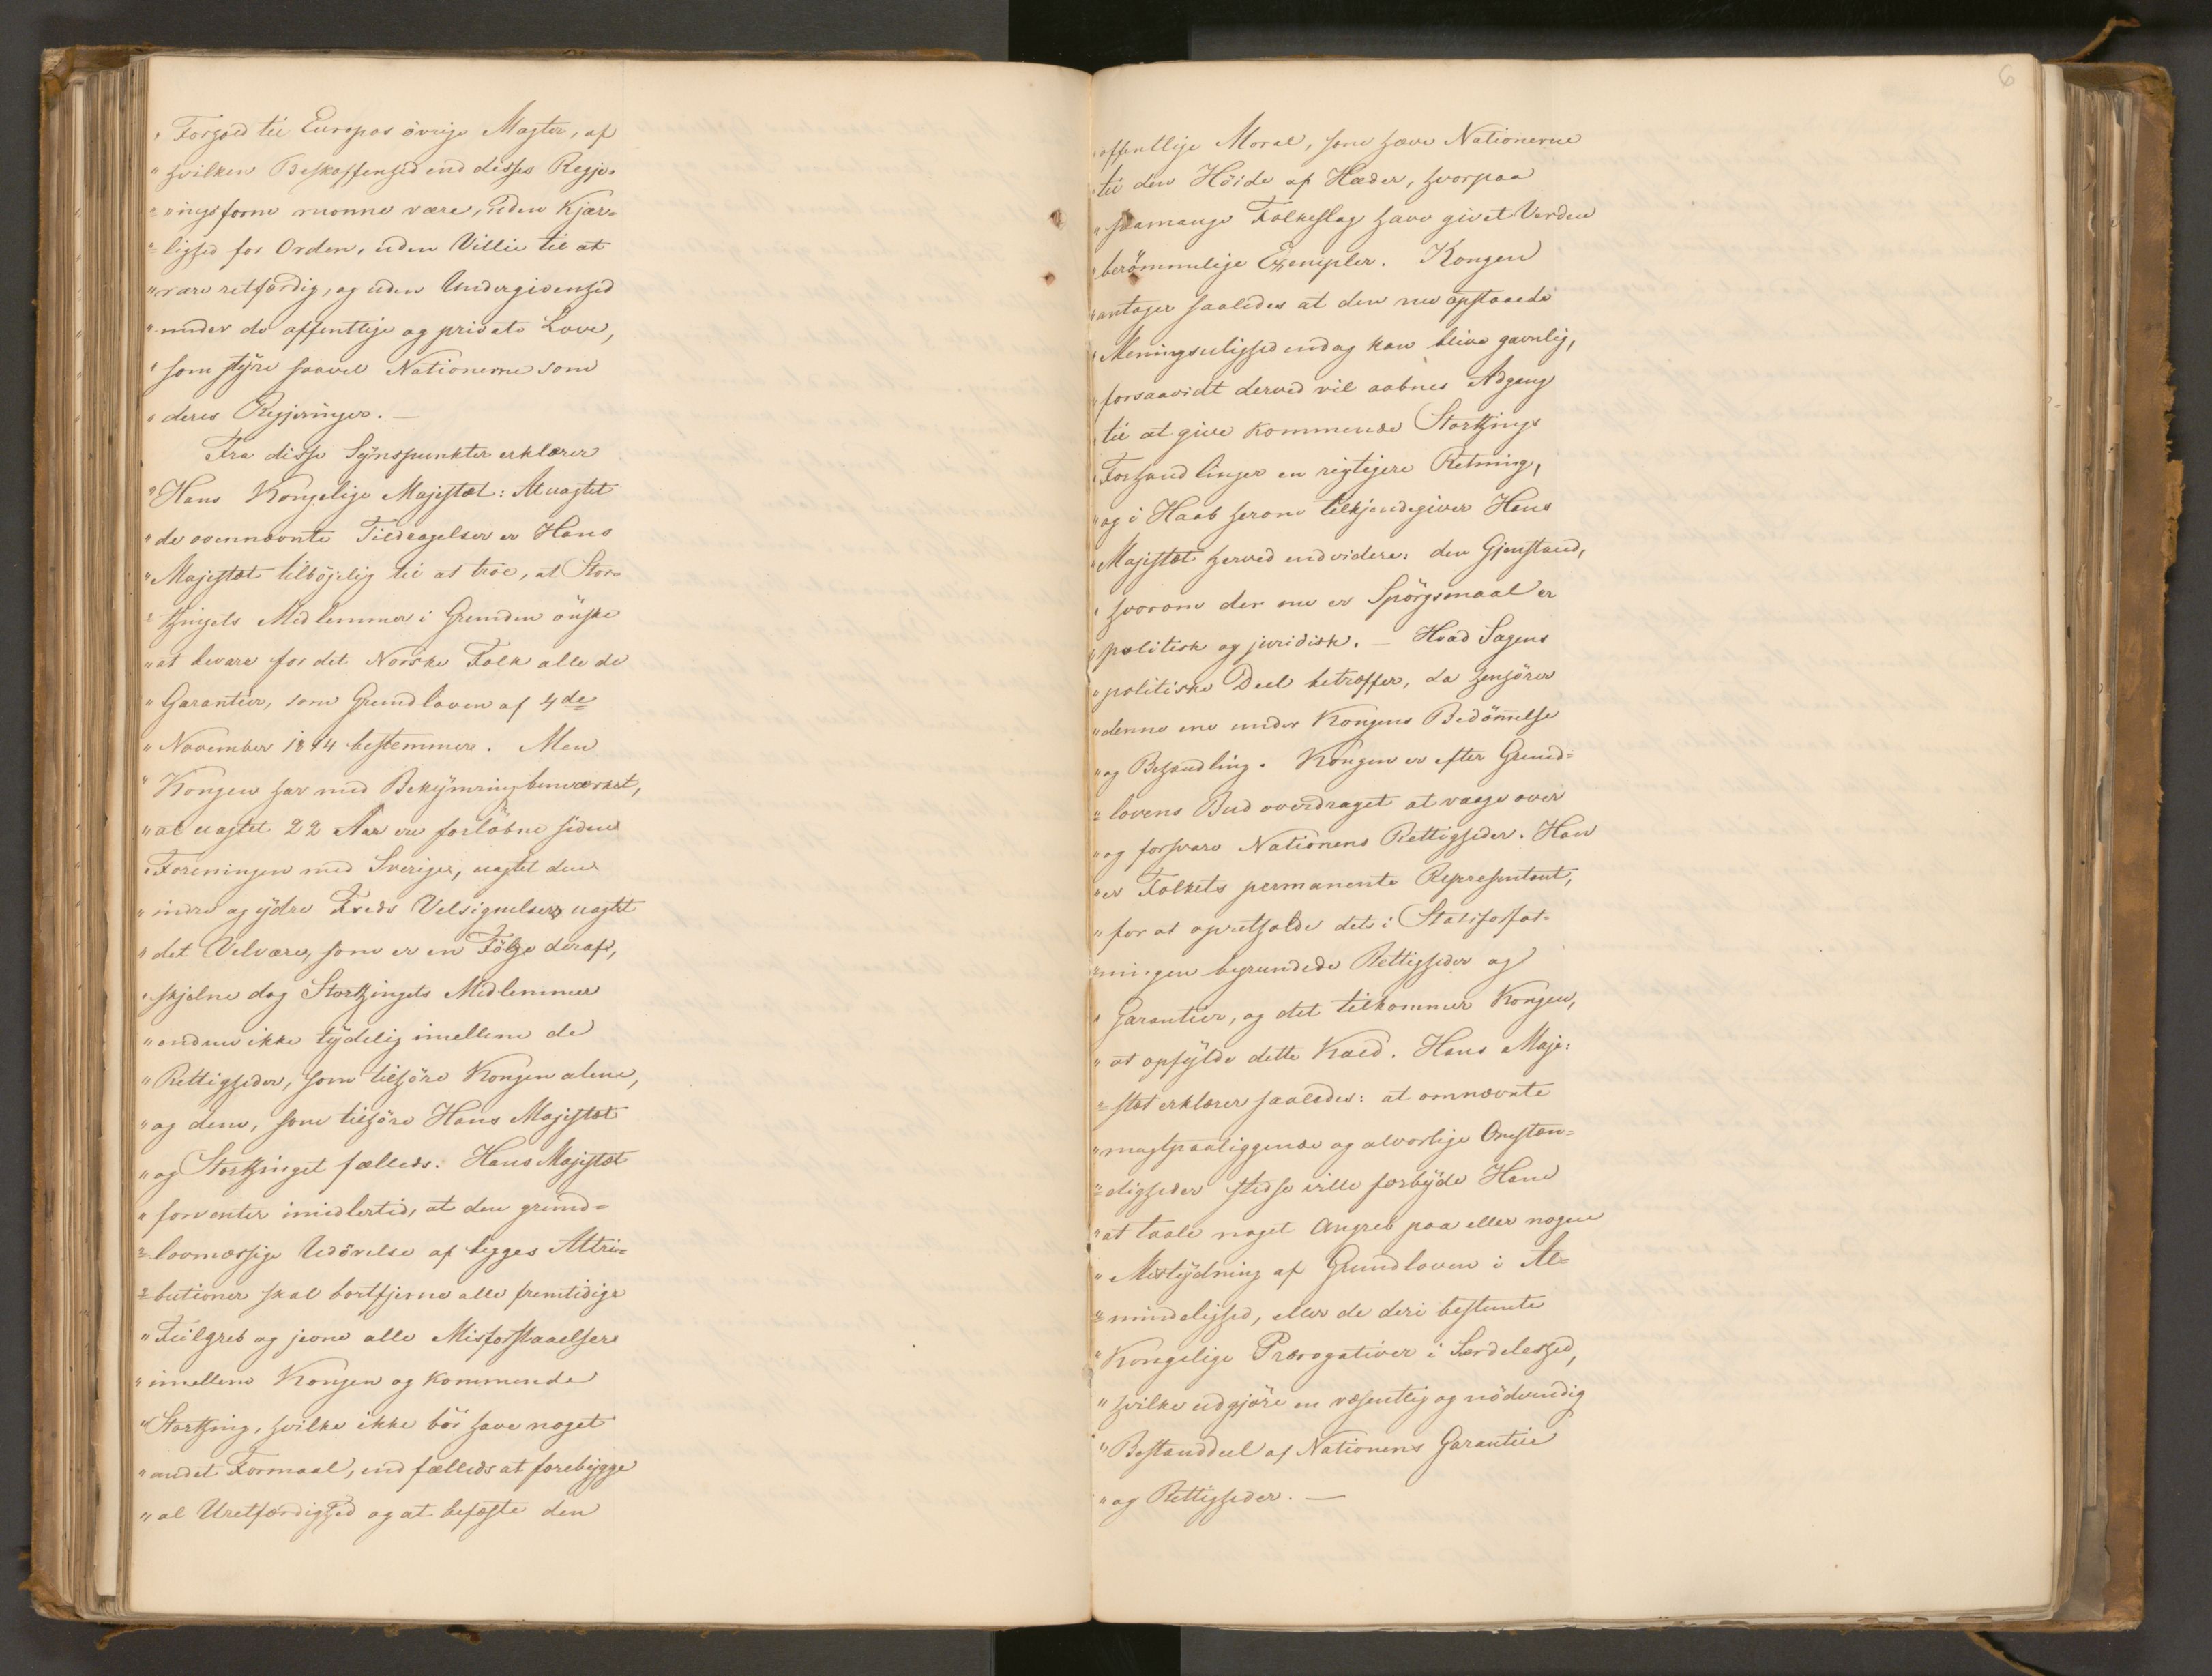 " Forhold til Europas övrige Magter, af
" hvilken Beskaffenhed end disses Regje-
" ringsform monne være, uden Kjær-
" lighed for Orden, uden Villie til at
" være retfærdig, og uden Undergivenhed
" under de offentlige og private Love,
" som styre saavel Nationerne som
" deres Regjeringer. —
Fra disse Synspunkter erklærer
" Hans Kongelige Majestæt: At uagtet
" de ovennævnte Tildragelser er Hans
" Majestæt tilböjelig til at troe, at Stor-
" thingets Medlemmer i Grunden önske
" at bevare for det Norske Folk alle de
" Garantier, som Grundloven af 4de
" November 1814 bestemmer. Men
" Kongen har med Bekymring bemærket,
" at uagtet 22 Aar ere forlöbne siden
" Foreningen med Sverige, uagtet den
" indre og ydre Freds Velsignelser, uagtet
" det Velvære, som er en Fölge deraf,
" skjelne dog Storthingets Medlemmer
" endnu ikke tydelig imellem de
" Rettigheder, som tilhöre Kongen alene,
" og dem, som tilhöre Hans Majestæt
" og Storthinget fælleds. Hans Majestæt
" forventer imidlertid, at den grund-
" lovmæssige Udövelse af begges Attri-
" butioner skal bortfjerne alle fremtidige
" Feilgreb og jevne alle Misforstaaelser
" imellem Kongen og kommende
" Storthing, hvilke ikke bör have noget
" andet Formaal, end fælleds at forebygge
" al Uretfærdighed og at befæste den
6
" offentlige Moral, som hæve Nationerne
" til den Höide af Hæder, hvorpaa
" saamange Folkeslag have givet Verden
" berömmelige Exempler. Kongen
" antager saaledes at den nu opstaaede
" Meningsulighed endog kan blive gavnlig,
" forsaavidt derved vil aabnes Adgang
" til at give kommende Storthings
" Forhandlinger en rigtigere Retning,
" og i Haab herom tilkjendegiver Hans
" Majestæt herved endvidere: den Gjenstand,
" hvorom der nu er Spörgsmaal er
" politisk og juridisk. — Hvad Sagens
" politiske Deel betræffer, da henhörer
" denne ene under Kongens Bedömelse
" og Behandling. Kongen er efter Grund-
" lovens Bud overdraget at vaage over
" og forsvare Nationens Rettigheder. Han
" er Folkets permanente Repræsentant,
" for at opretholde dets i Statsforfat-
" ningen begrundede Rettigheder og
" Garantier, og det tilkommer Kongen,
" at opfylde dette Kald. Hans Maje-
" stæt erklærer saaledes: at omnævnte
" magtpaaliggende og alvorlige Omstæn-
" digheder stedse ville forbyde Ham
" at taale noget Angreb paa eller nogen
" Mistydning af Grundloven i Al-
" mindelighed, eller de deri bestemte
" Kongelige Prærogativer i Særdeleshed,
" hvilke udgjöre en væsentlig og nödvendig
" Bestanddeel af Nationens Garantier
" og Rettigheder. —